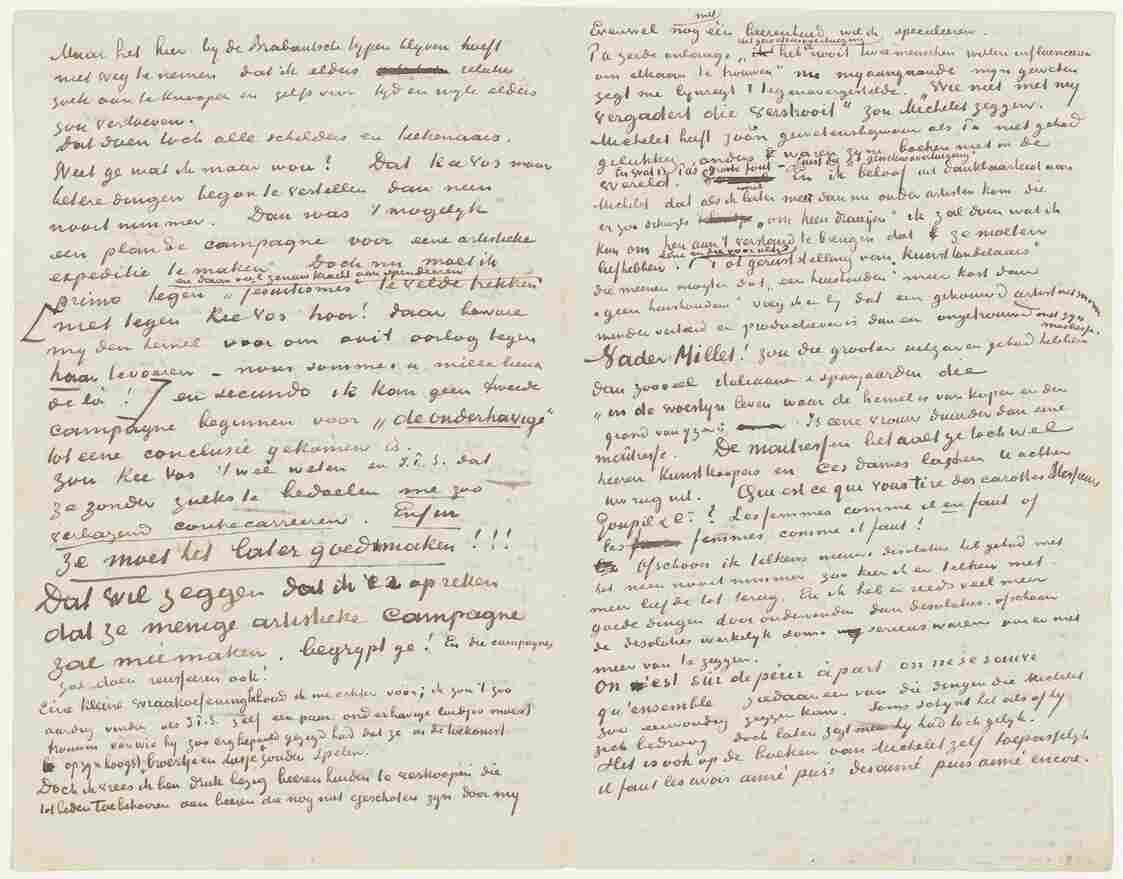 Maar het hier by de Brabantsche typen blyven hoeft
niet weg te nemen dat ik elders relaties
zoek aan te knoopen en zelfs voor tyd en wyle elders
zou vertoeven.
Dat doen toch alle schilders en teekenaars.
Weet ge wat ik maar wou! Dat Kee Vos maar
betere dingen begon te vertellen dan neen
nooit nimmer. Dan was 't mogelyk
een plan de campagne voor eene artistieke
expeditie te maken. Doch nu moet ik
en daar veel zenuwkracht aan spendeeren
primo tegen „Jesuitismes" te velde trekken
niet tegen Kee Vos hoor! daar beware
my den hemel voor om ooit oorlog tegen
haar te voeren – nous sommes à mille lieues
de là! en secundo ik kan geen tweede
campagne beginnen voor „de onderhavige"
tot eene conclusie gekomen is.
Zou Kee Vos 't wel weten en J.P.S. dat
ze zonder zulks te bedoelen me zoo
verbazend contrecarreeren. Enfin
Ze moet het later goed maken!!!
Dat wil zeggen dat ik er op reken
dat ze menige artistieke campagne
zal meemaken. begrypt ge! En die campagnes
zal doen reusseren ook!
Eene kleine wraakoefening behoud ik me echter voor; ik zou 't zoo
aardig vinden als J.P.S. zelf een paar onderhavige luitjes moest
trouwen van wie hy zoo erg bepaald gezegd had dat ze in de toekomst
op zyn hoogst broertje en zusje zouden spelen.
Doch ik vrees ik ben druk bezig beerenhuiden te verkoopen die
tot heden toebehooren aan beeren die nog niet geschoten zyn door my
Evenwel nog met één beerenhuid wil ik speculeeren.
uit gewetensovertuiging
Pa zeide onlangs „ik heb nooit twee menschen willen influenceeren
om elkaar te trouwen" nu my aangaande myn geweten
zegt me bynaegt 't tegenovergestelde. „Wie niet met my
vergadert die verstrooit" zou Michelet zeggen.
Michelet heeft zoo'n gewetensbezwaar als Pa niet gehad
gelukkig, anders waren zyne boeken niet in de
wereld. En wat is Pas groote fout – juist by die gewetensovertuiging. En ik beloof uit dankbaarheid aan
Michelet dat als ik later meer dan nu onder artisten kom die
er zoo schuchter „om heen draaijen" ik zal doen wat ik
kan om hen aan 't verstand te brengen dat ze moeten
liefhebben. Tot geruststelling van „kunsthandelaars"
die meenen mogten dat „een huishouden" meer kost dan
„geen huishouden" voeg ik er by dat een getrouwd artist met zyn vrouw
minder verteert en productiever is dan een ongetrouwd met zyn
maitresse.
Vader Millet! zou die grooter uitgaven gehad hebben
dan zooveel Italianen & Spanjaarden die
„in de woestyn leven waar de hemel is van koper en de
grond van yzer". Is eene vrouw duurder dan eene
maitresse. De maitressen betaalt ge toch wel
heeren kunstkoopers en ces dames lagchen U achter
uw rug uit. Qui est ce qui vous tire des carottes Messieurs
Goupil & Cie? Les femmes comme il en faut of
les femmes comme il faut!
Ofschoon ik telkens nieuwe desolaties heb gehad met
het neen nooit nimmer zoo keer ik er telkens met
meer liefde tot terug. En ik heb er reeds veel meer
goede dingen door ondervonden dan desolaties. ofschoon
de desolaties werkelyk soms serieus waren om er niet
meer van te zeggen.
On est sûr de périr à part on ne se sauve
qu'ensemble ziedaar een van die dingen die Michelet
zoo eenvoudig zeggen kan. Soms schynt het als of hy
zich bedroog doch later zegt men hy had toch gelyk.
Het is ook op de boeken van Michelet zelf toepasselyk
il faut les avoir aimé puis désaimé puis aimé encore.